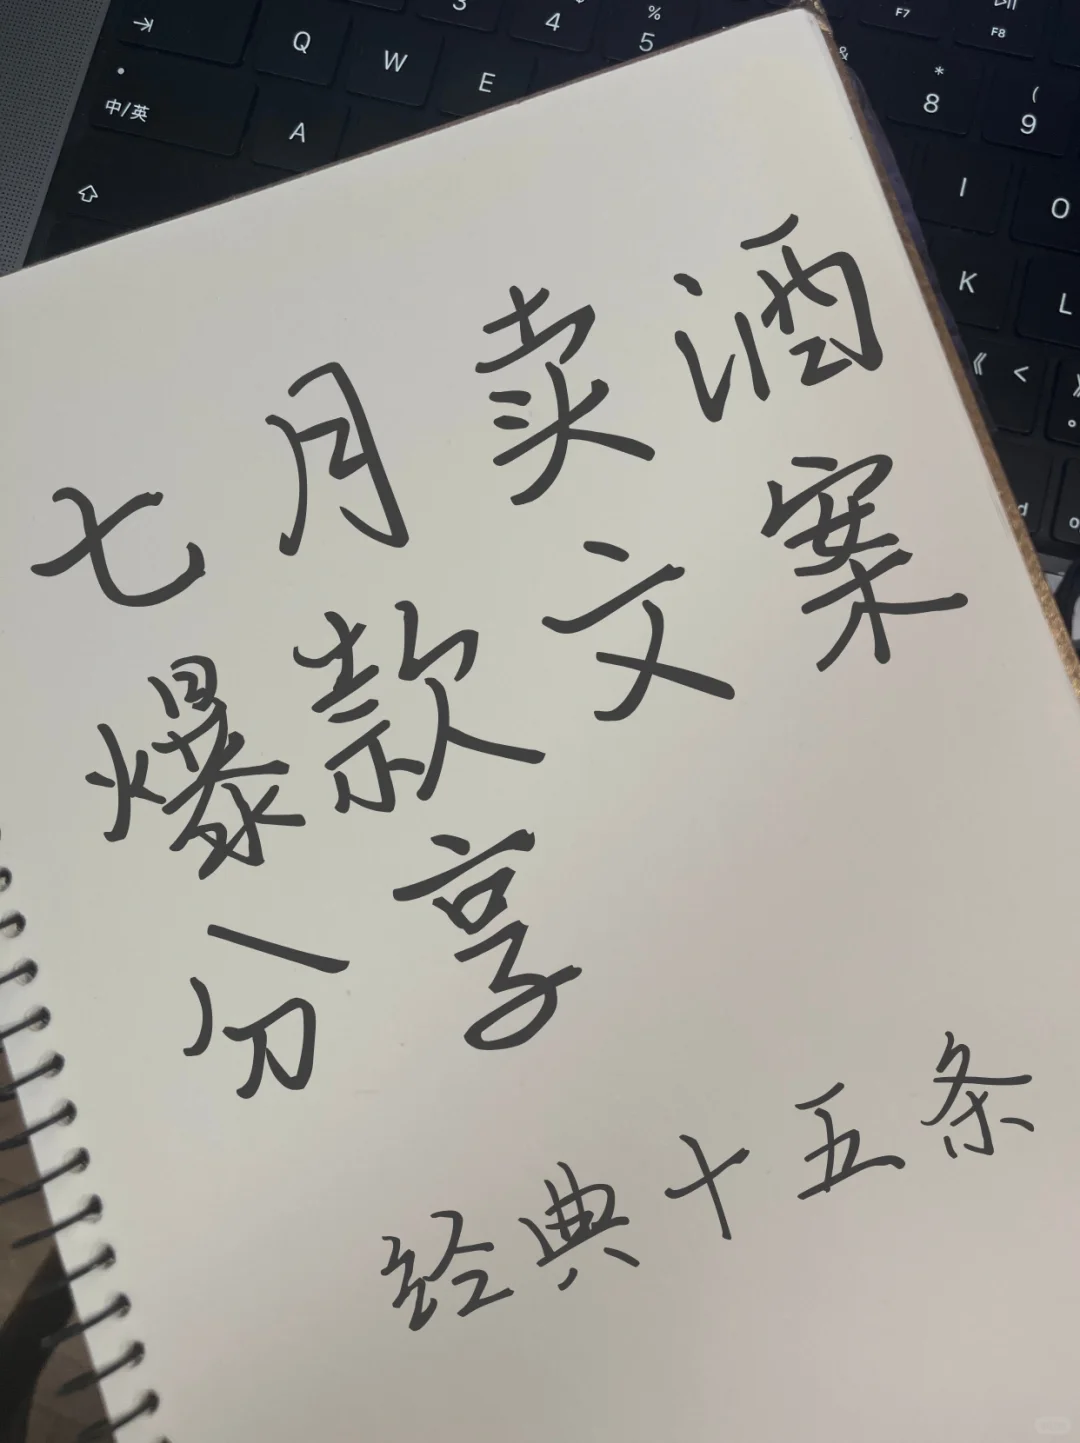 七月卖酒
爆款文案
分享
经典十五条
⇥ Q W E 3 4 % 5 F7 F8
中/英 A & * 8 ( 9
I O
K L
《 < 》 。